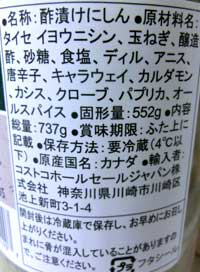 ●名称:酢漬けにしん●原材料名:
タイセイヨウニシン、玉ねぎ、醸造
酢、砂糖、食塩、ディル、アニス、
唐辛子、キャラウェイ、カルダモン
、カシス、クローブ、パプリカ、オー
ルスパイス●固形量:552g●
総量:737g●賞味期限:ふた上に
記載●保存方法:要冷蔵(4℃以
下)●原産国名:カナダ●輸入者:
コストコホールセールジャパン株式
会社 神奈川県川崎市川崎区
池上新町3-1-4
開封後は冷蔵庫で保存し、お早めにお召し
上がりください。
まれに骨が混入していることがありますので、
ご注意ください。
フタ・シール